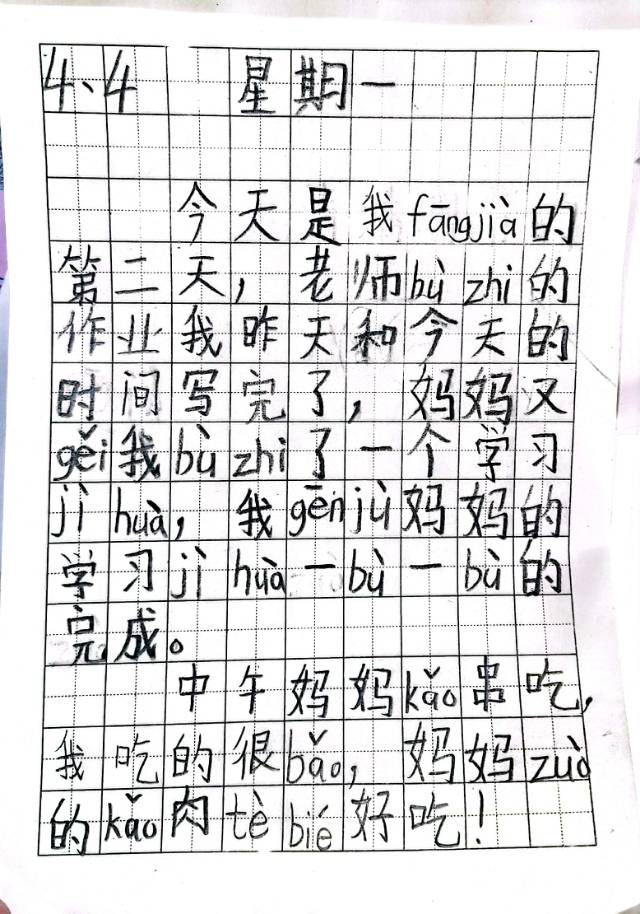 4、4 星期一
今天是我fāngjià的
第二天，老师bù zhi的
作业我昨天和今天的
时间写完了，妈妈又
gěi我bù zhi了一个学习
jì huà，我gēnjù妈妈的
学习jì huà一bù一bù的
完成。
中午妈妈kǎo串吃，
我吃的很bǎo，妈妈zuò
的kǎo肉tè bié好吃！